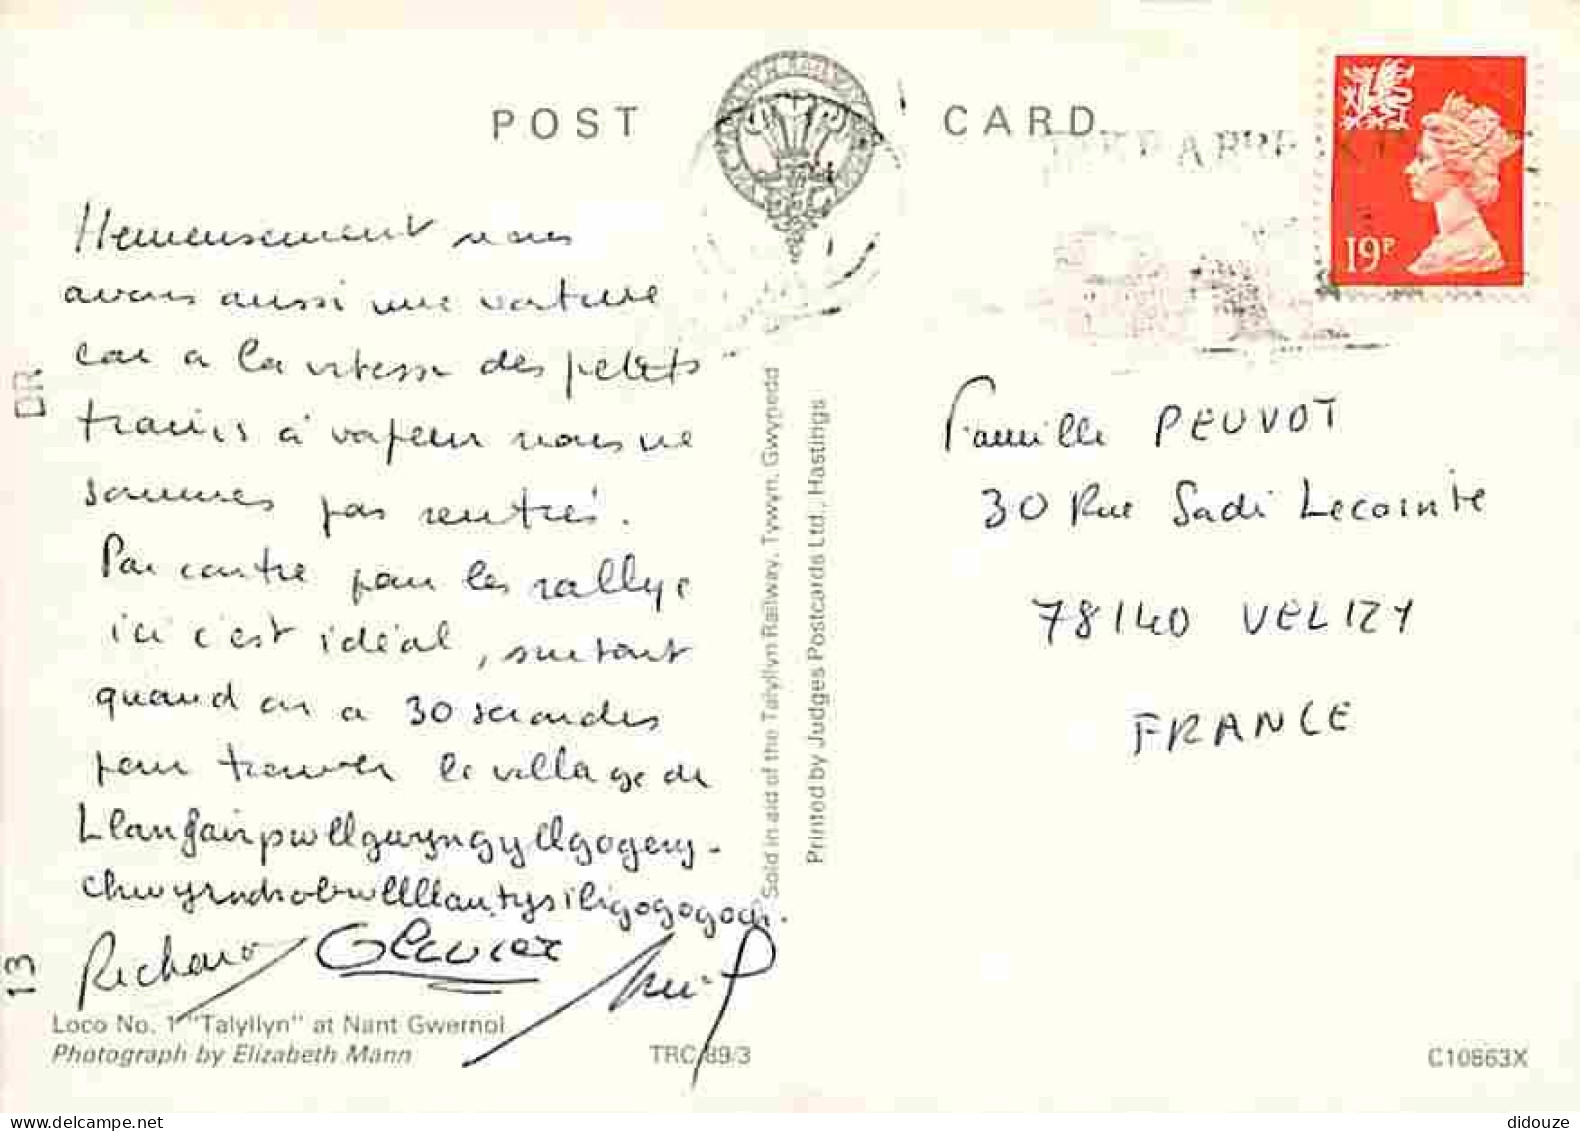 POST CARD
19P
Hemeusement nous
avons aussi une voiture
car a la vitesse des petits
trains à vapeur nous ne
sommes pas rentrés.
Par contre pour les rallye
ici c'est idéal, surtout
quand on a 30 secondes
pour trouver le village de
Llanfairpwllgwyngyllgogery-
chwyrndrobwllllantysiliogogogoch.
Richard
Famille PEUVOT
30 Rue Sadi Lecointe
78140 VELIZY
FRANCE
Sold in aid of the Talyllyn Railway, Tywyn, Gwynedd
Printed by Judges Postcards Ltd., Hastings
DR
13
Loco No. 1 "Talyllyn" at Nant Gwernol
Photograph by Elizabeth Mann
TRC/89/3
C10863X
didouze